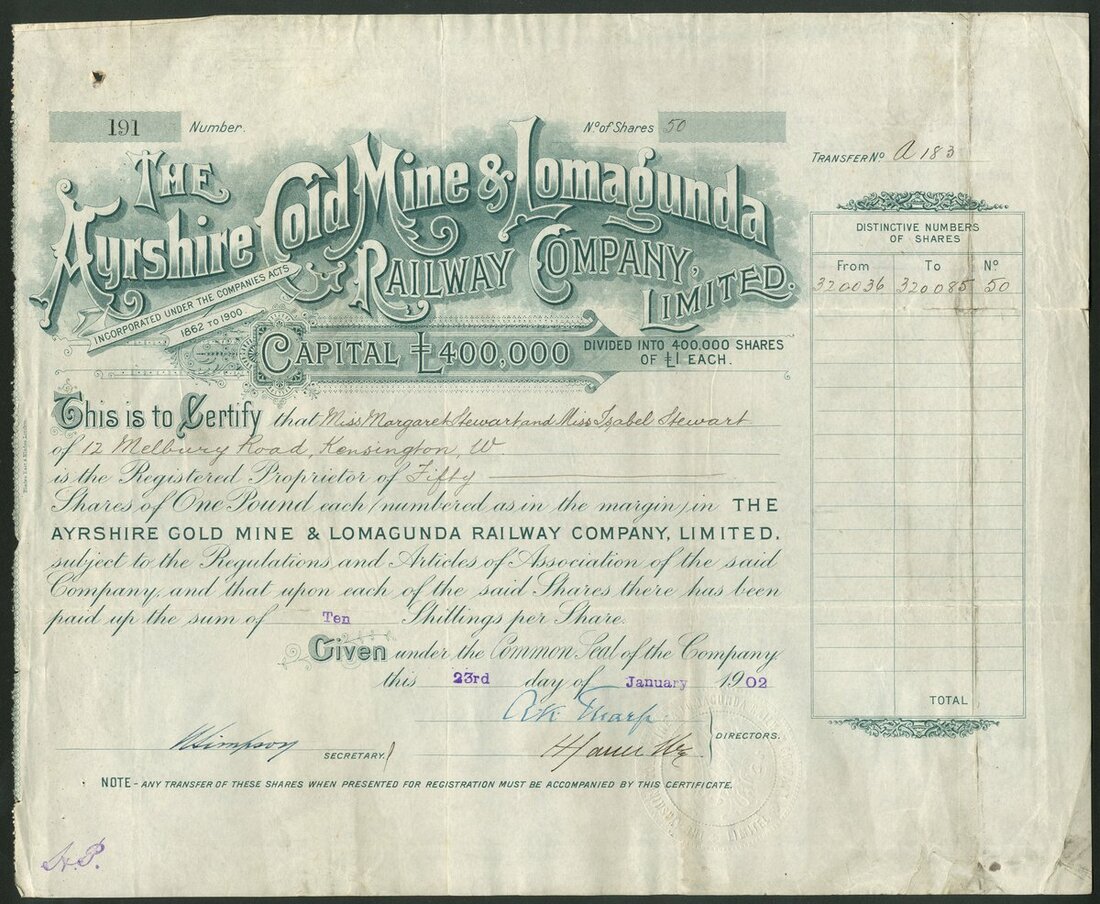 191 Number.
No of Shares 50
TRANSFER No A 183
THE
Ayrshire Gold Mine & Lomagunda
RAILWAY COMPANY,
LIMITED.
INCORPORATED UNDER THE COMPANIES ACTS
1862 TO 1900
CAPITAL £400,000
DIVIDED INTO 400.000 SHARES
OF £1 EACH.
DISTINCTIVE NUMBERS
OF SHARES
From To No
320036 320085 50
This is to Certify that Miss Margaret Stewart and Miss Isabel Stewart
of 12 Melbury Road, Kensington, W
is the Registered Proprietor of Fifty
Shares of One Pound each (numbered as in the margin) in THE
AYRSHIRE GOLD MINE & LOMAGUNDA RAILWAY COMPANY, LIMITED.
subject to the Regulations and Articles of Association of the said
Company, and that upon each of the said Shares there has been
paid up the sum of Ten Shillings per Share.
Given under the Common Seal of the Company
this 23rd day of January 1902
TOTAL
DIRECTORS.
SECRETARY.
NOTE - ANY TRANSFER OF THESE SHARES WHEN PRESENTED FOR REGISTRATION MUST BE ACCOMPANIED BY THIS CERTIFICATE.